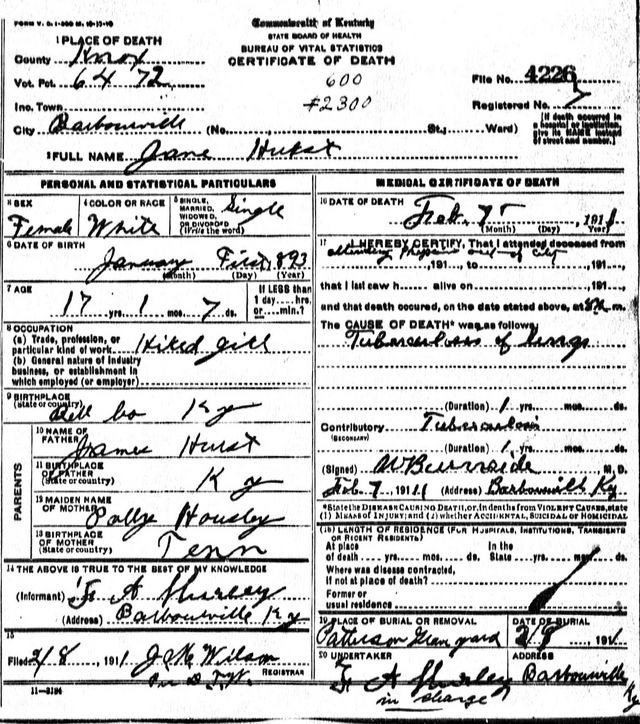 FORM V. S. 1-200 M. 10-13-10
Commonwealth of Kentucky
STATE BOARD OF HEALTH
BUREAU OF VITAL STATISTICS
CERTIFICATE OF DEATH
1 PLACE OF DEATH
County Knox
Vot. Pct. 6472
Inc. Town
City Barbourville (No. St.; Ward)
600
#2300
File No. 4226
Registered No. 7
[If death occurred in a hospital or institution, give its NAME instead of street and number.]
2 FULL NAME Jane Hurst
PERSONAL AND STATISTICAL PARTICULARS
3 SEX Female
4 COLOR OR RACE White
5 SINGLE, MARRIED, WIDOWED, OR DIVORCED (Write the word) Single
6 DATE OF BIRTH
January First 893
(Month) (Day) (Year)
7 AGE
17 yrs. 1 mos. 7 ds.
If LESS than 1 day... hrs. or... min.?
8 OCCUPATION
(a) Trade, profession, or particular kind of work Hired girl
(b) General nature of industry business, or establishment in which employed (or employer)
9 BIRTHPLACE
(State or country) Bell Co Ky
PARENTS
10 NAME OF FATHER James Hurst
11 BIRTHPLACE OF FATHER (State or country) Ky
12 MAIDEN NAME OF MOTHER Pollye Housley
13 BIRTHPLACE OF MOTHER (State or country) Tenn
14 THE ABOVE IS TRUE TO THE BEST OF MY KNOWLEDGE
(Informant) F. A Shurley
(Address) Barbourville Ky
15
Filed 2/8, 1911 J. M. Wilson
REGISTRAR
11-3184
MEDICAL CERTIFICATE OF DEATH
16 DATE OF DEATH
Feb. 7 1911
(Month) (Day) (Year)
17 I HEREBY CERTIFY, That I attended deceased from
attending Physician out of city
, 191 , to , 191 ,
that I last saw h alive on , 191 ,
and that death occured, on the date stated above, at 8 P m.
The CAUSE OF DEATH* was as follows:
Tuberculosis of lungs
(Duration) 1 yrs. mos. ds.
Contributory Tuberculosis
(SECONDARY)
(Duration) 1 yrs. mos. ds.
(Signed) W Burnside, M. D.
Feb. 7, 1911 (Address) Barbourville Ky
*State the DISEASE CAUSING DEATH, or, in deaths from VIOLENT CAUSES, state (1) MEANS OF INJURY; and (2) whether ACCIDENTAL, SUICIDAL OR HOMICIDAL.
(18) LENGTH OF RESIDENCE (FOR HOSPITALS, INSTITUTIONS, TRANSIENTS OR RECENT RESIDENTS)
At place of death yrs. mos. ds. In the State yrs. mos. ds.
Where was disease contracted, if not at place of death?
Former or usual residence
19 PLACE OF BURIAL OR REMOVAL
Patterson Graveyard
DATE OF BURIAL
2/8, 1911
20 UNDERTAKER
F A Shurley
in charge
ADDRESS
Barbourville Ky